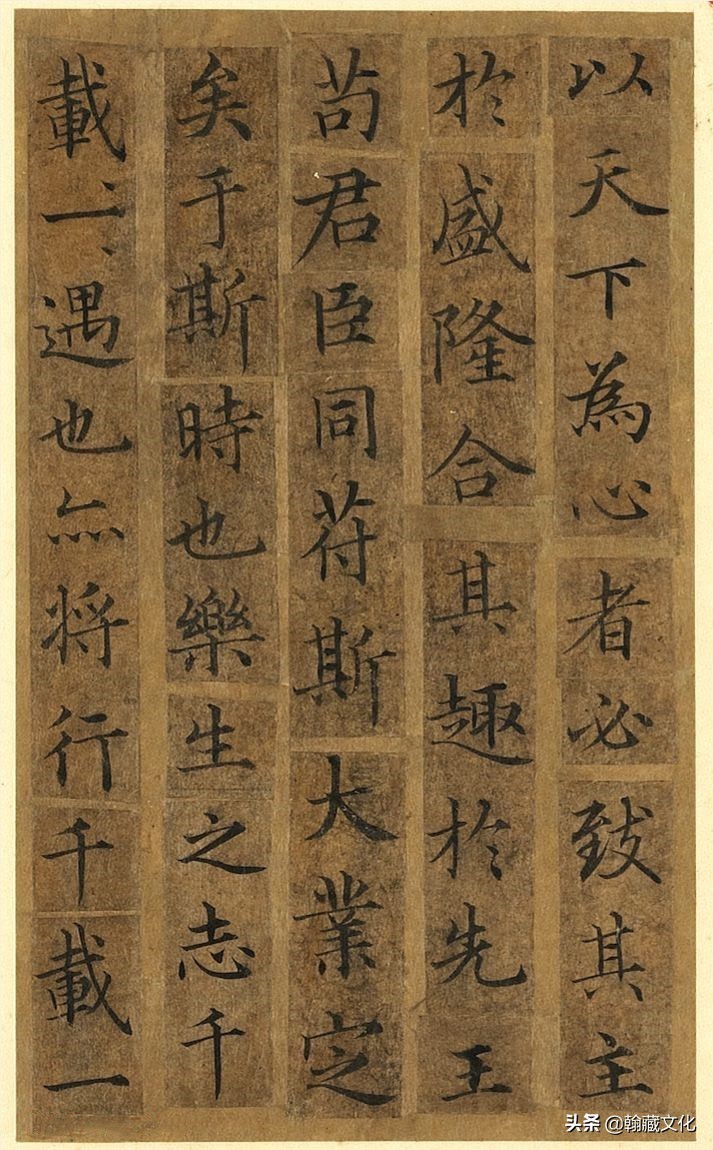 以天下為心者必致其主
於盛隆合其趣於先王
苟君臣同苻斯大業定
矣于斯時也樂生之志千
載一遇也亦将行千載一
头条 @翰藏文化